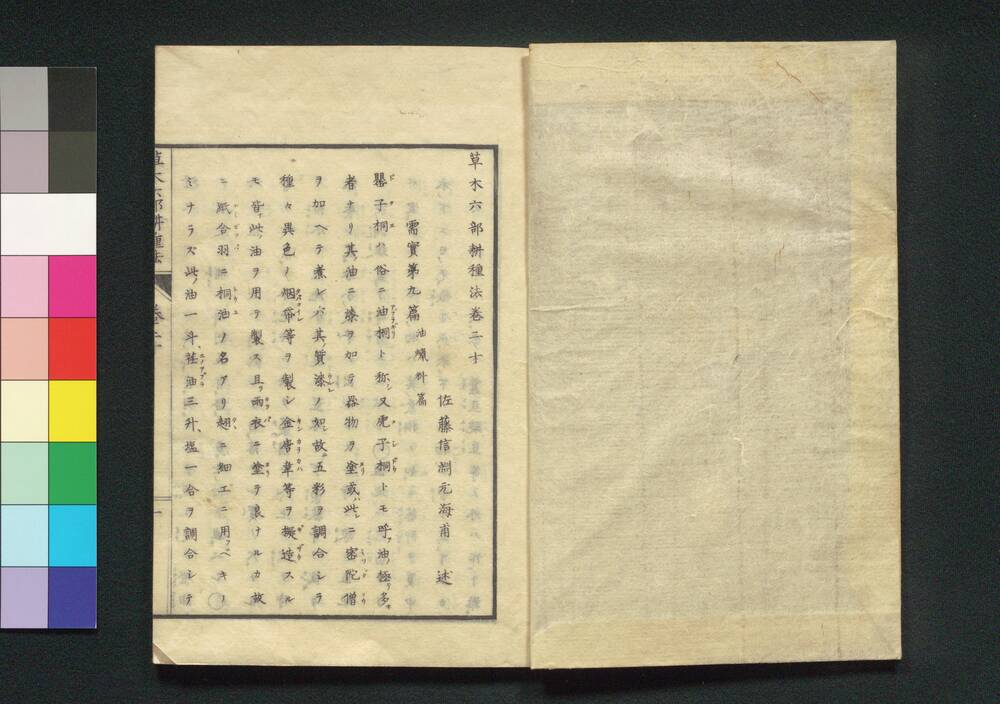 草木六部耕種法卷二十
佐藤信淵元海甫 述
需實第九篇 油蠟外篇
罌子桐ハ俗ニ油桐ト称シ又虎子桐トモ呼フ油極テ多キ
者ナリ其油ニ漆ヲ加テ器物ヲ塗或ハ此ニ密陀僧
ヲ加ヘテ煮レバ其質漆ノ如シ故ニ五彩ヲ調合シテ
種々異色ノ等ヲ製シ金唐革等ヲ擬造スル
モ皆此ノ油ヲ用テ製ス且ツ雨衣ニ塗テ良ナルカ故
ニ合羽ニ桐油ノ名アリ翅ニ細工ニ用フベキノ
ミナラズ此ノ油一斗、荏油三升、塩一合ヲ調合シテ
草木六部耕種法 卷二十 一